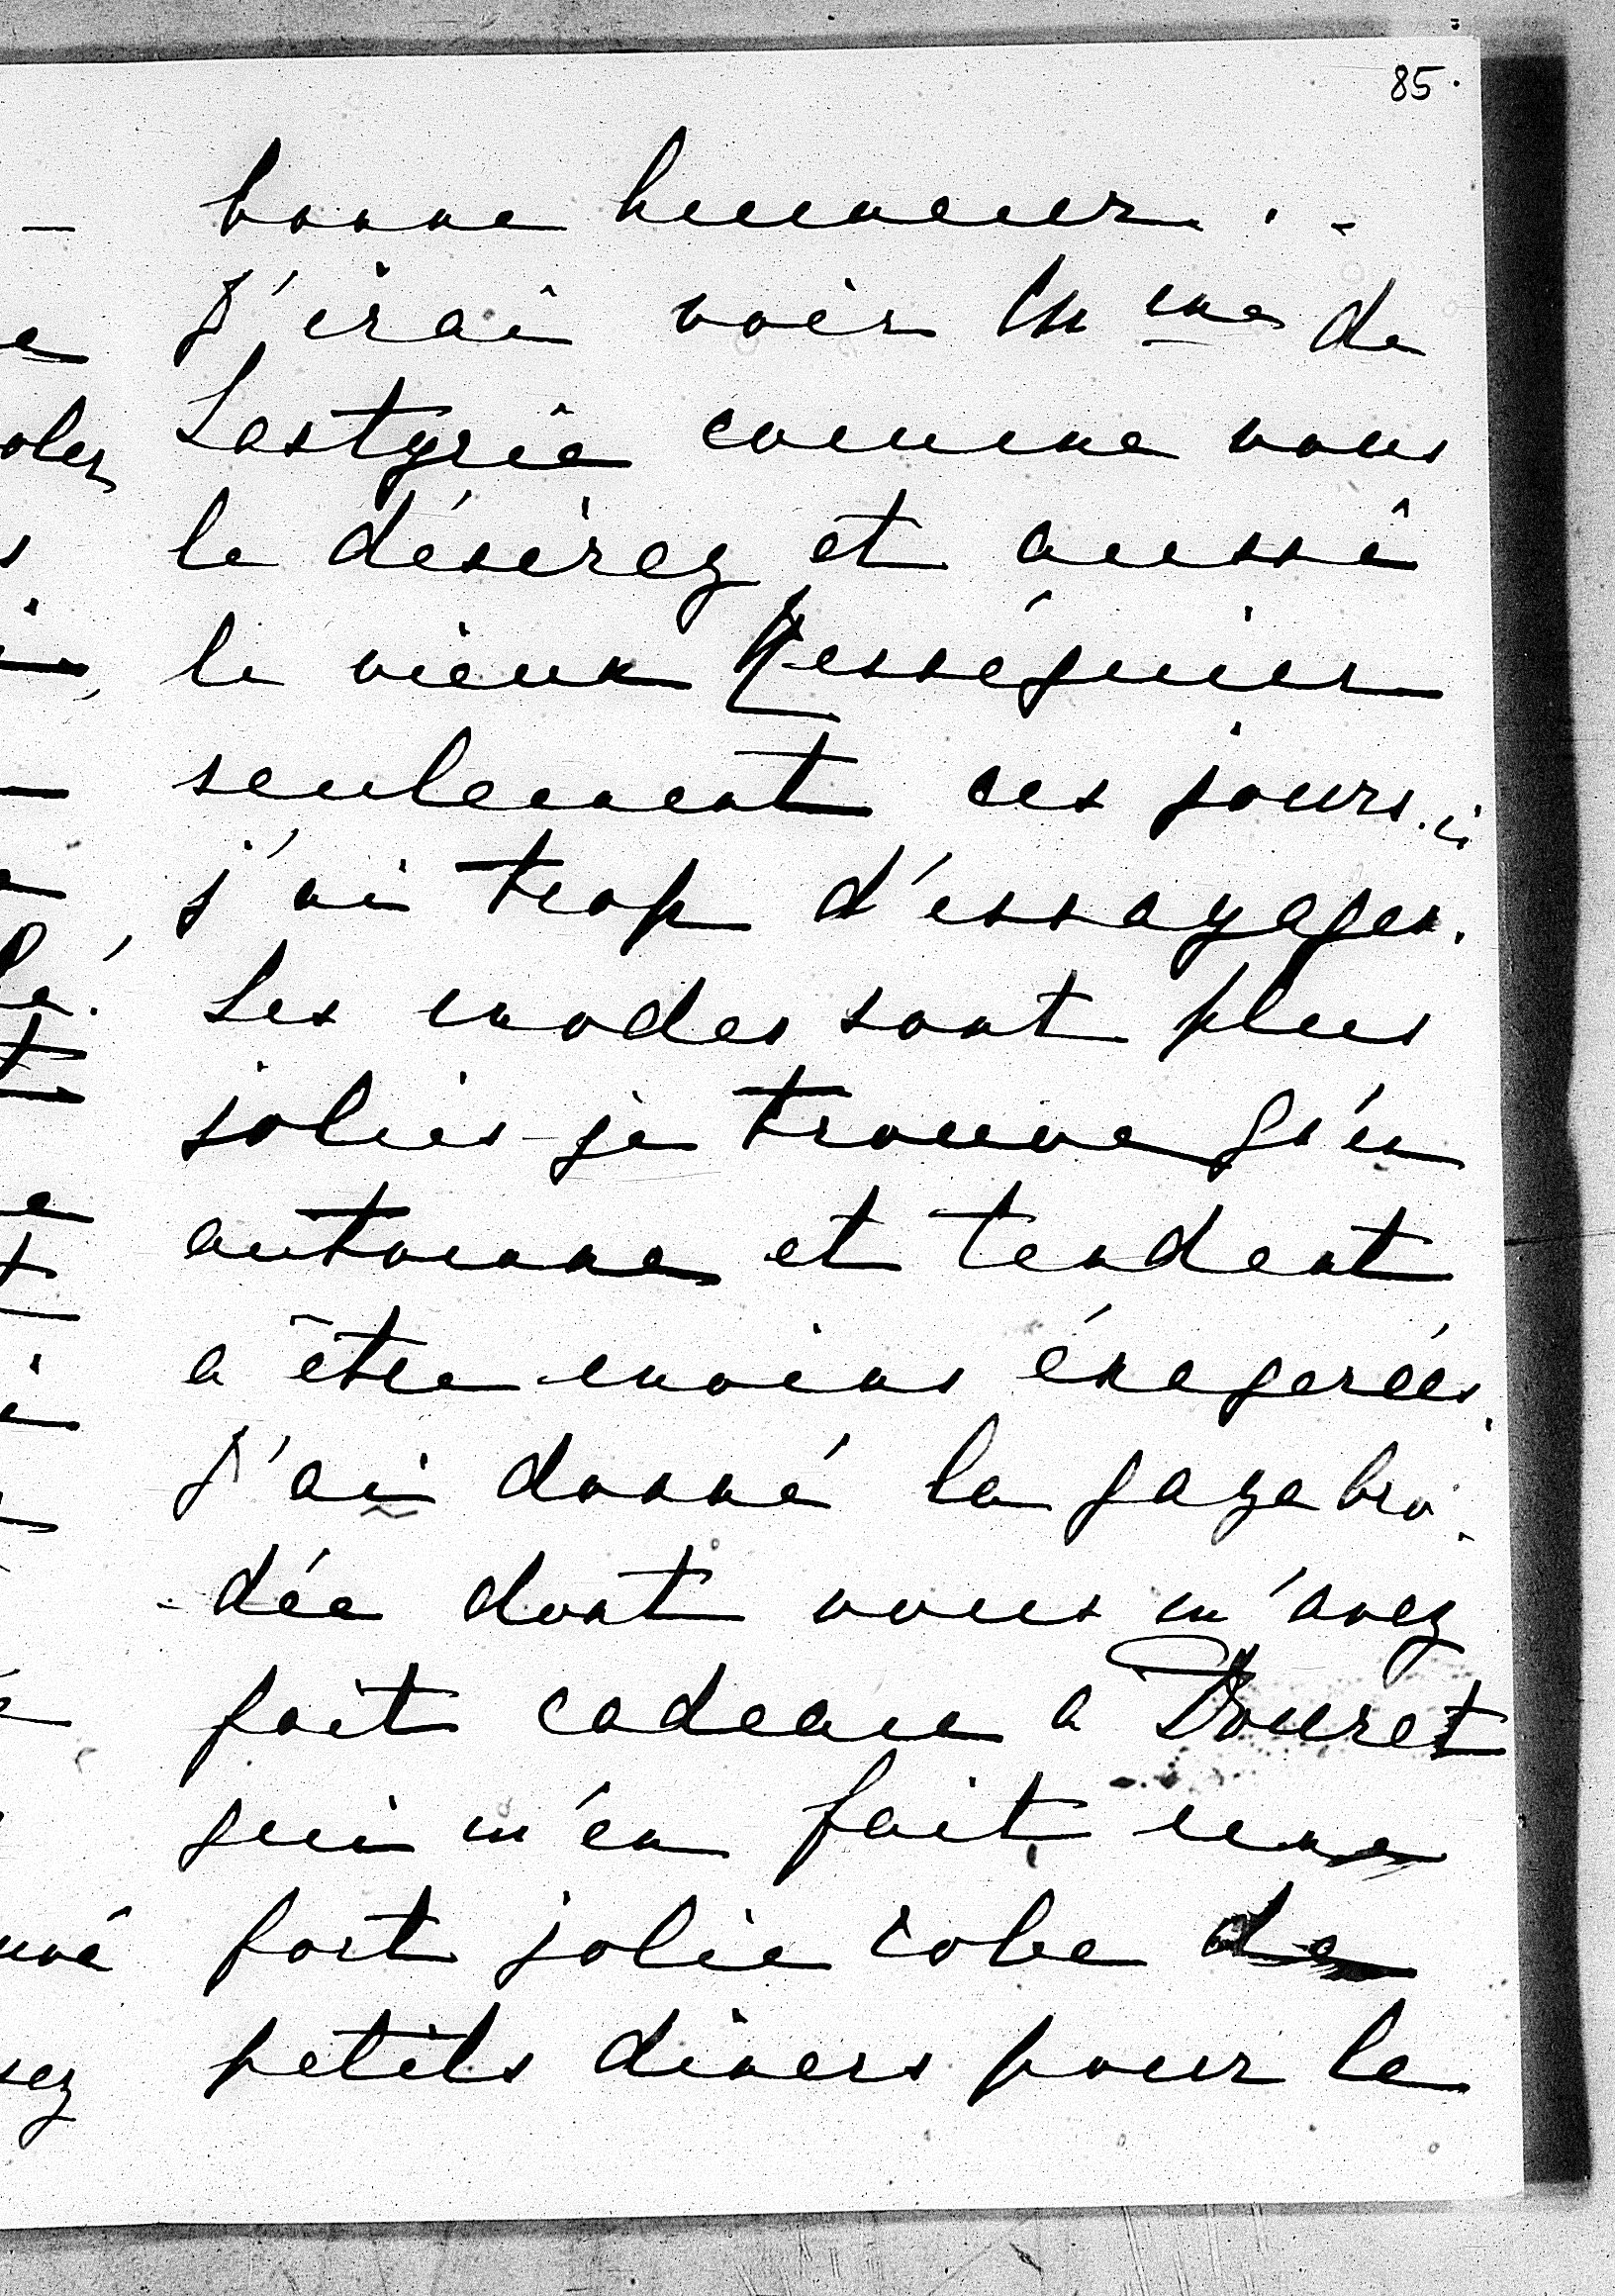 85.
bonne humeur..-
J'irai voir Mme de
Lastyrie comme vous
le désirez et aussi
le vieux Rességuier
seulement ces jours.ci
j'ai trop d'essayages.
Les modes sont plus
jolies je trouve qu'en
automne et tendent
a être moins éxagerées.
J'ai donné la gaze bro-
-dée dont vous m'avez
fait cadeau a Douret
qui m'en fait une
fort jolie robe de
petits diners pour le